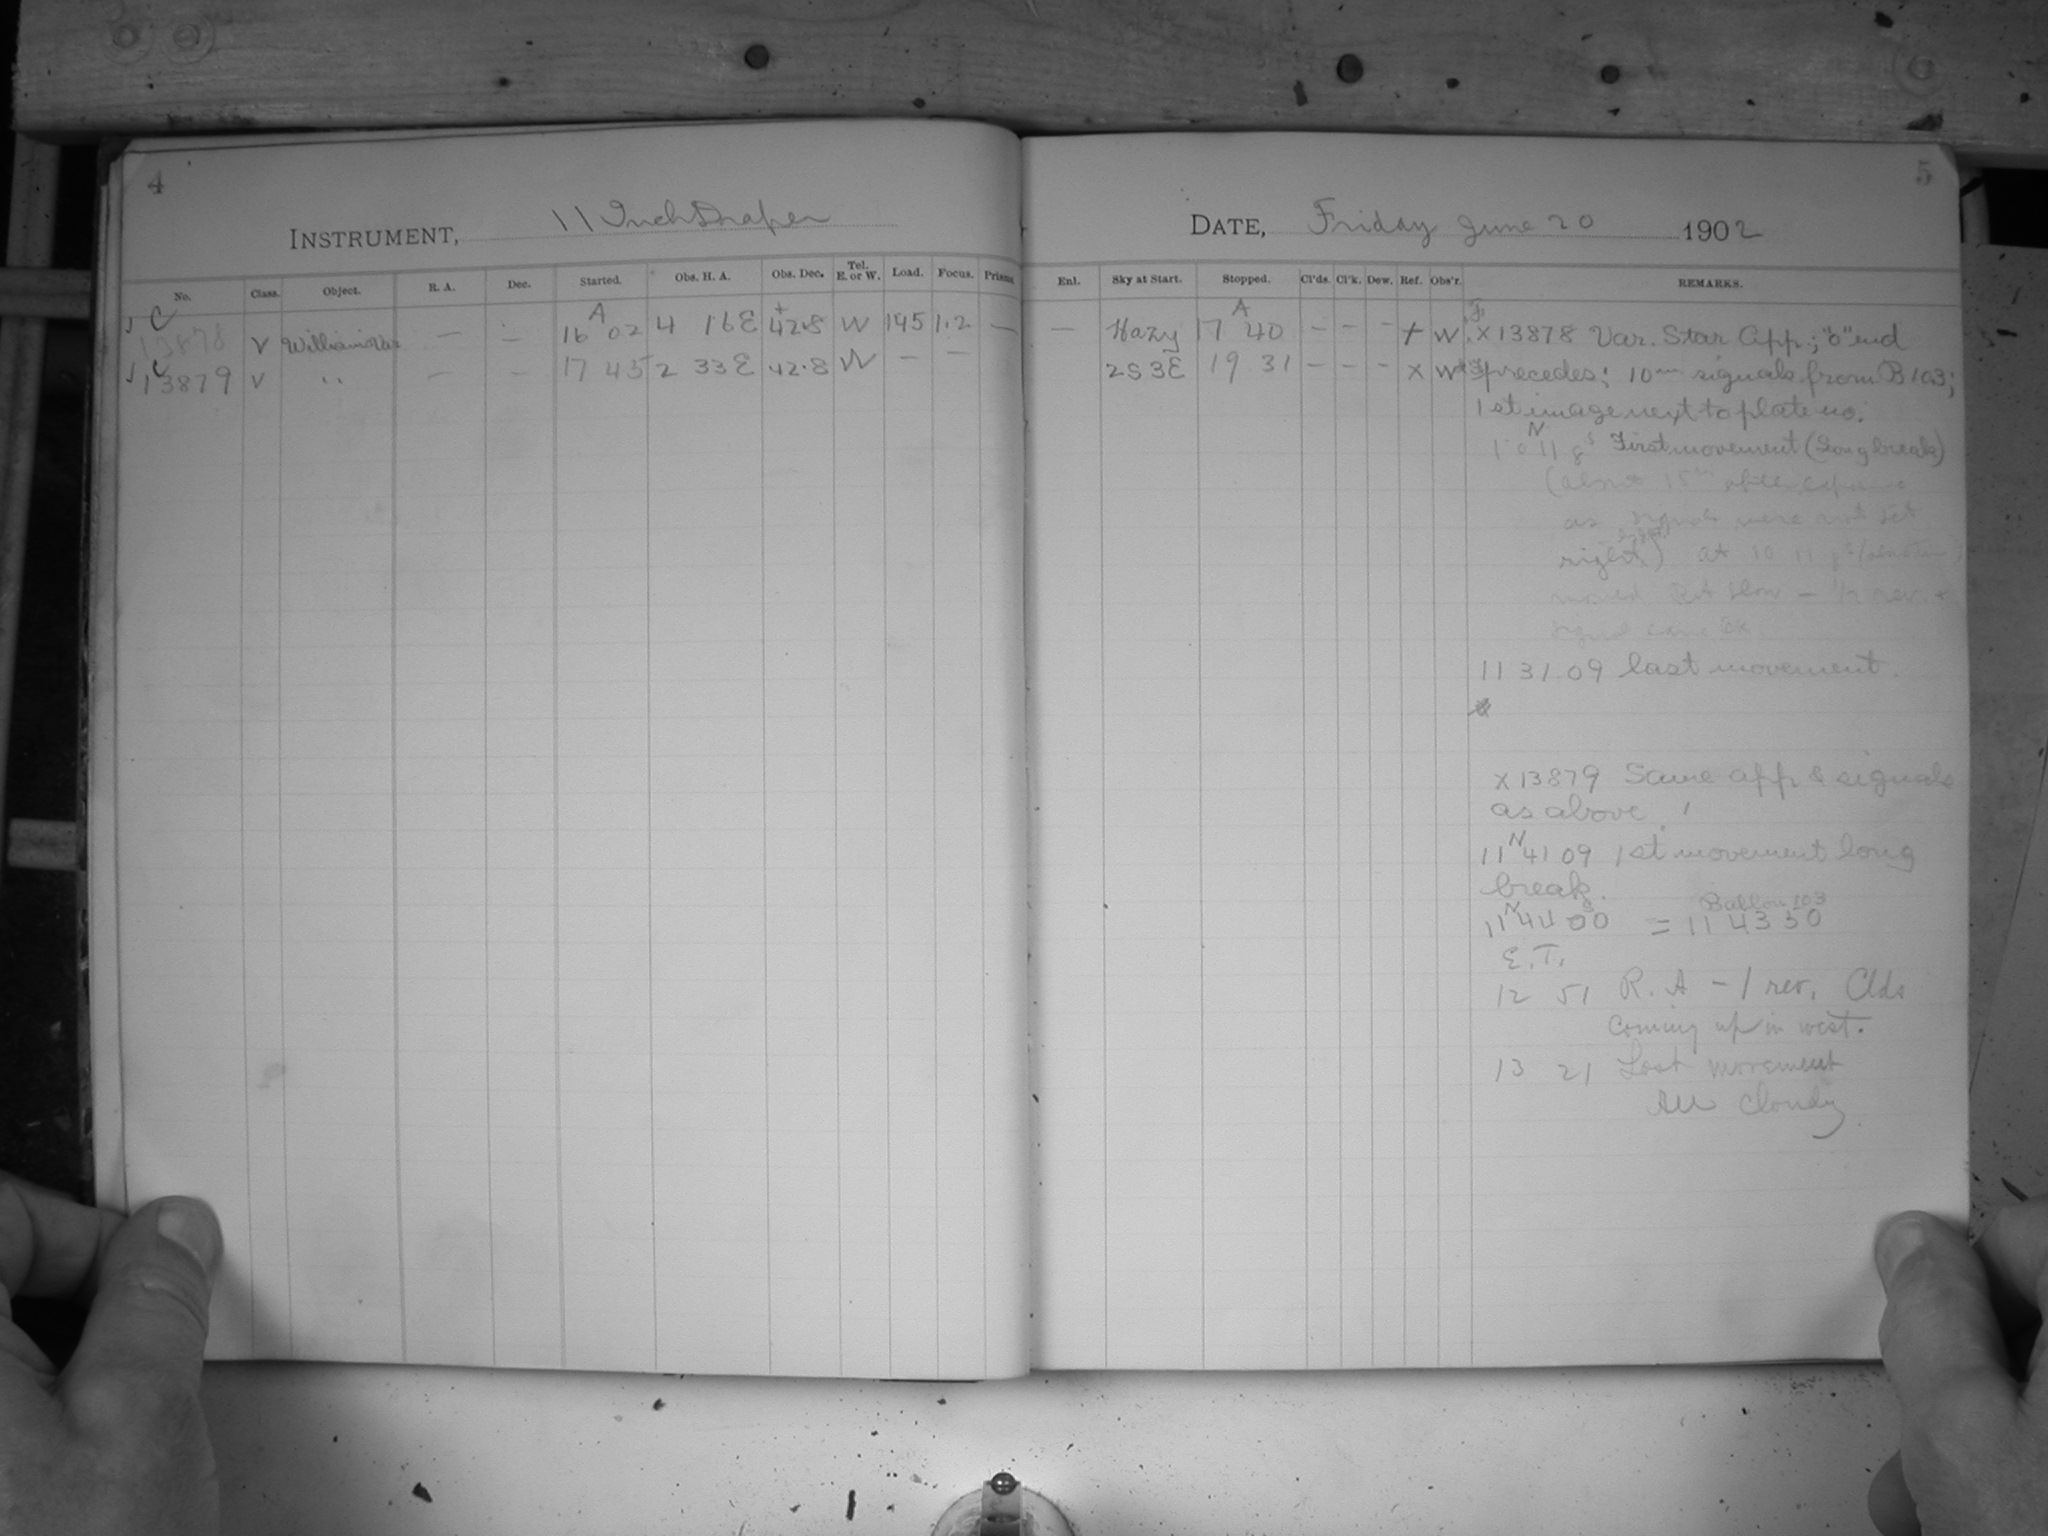 4
INSTRUMENT, 11 Inch Draper
No. Class. Object. R. A. Dec. Started. Obs. H. A. Obs. Dec. Tel. E. or W. Load. Focus. Prisms
C 13878 V Williams Var — — A 16 02 4 16 E + 42.8 W 195 1.2 —
C 13879 V " — — 17 45 2 33 E 42.8 W — —
5
DATE, Friday June 20 1902
Enl. Sky at Start. Stopped. Cl'ds. Cl'k. Dew. Ref. Obs'r. REMARKS.
— Hazy A 17 40 — — — + W. X 13878 Var. Star App.; "o" end
2S3E 19 31 — — — X W precedes; 10m signals from B 103;
1st image next to plate no.
First movement (Long break)
as signals were not set
right) at 10 11
moved - 1/2 rev.
signal
11 31 09 last movement.
X 13879 Same app & signals
as above.
11 N 41 09 1st movement long
break.
Ballou 103
11 N 44 00 s = 11 43 50
E.T.
12 51 R. A - 1 rev. Clds
coming up in west.
13 21 Last movement
All cloudy